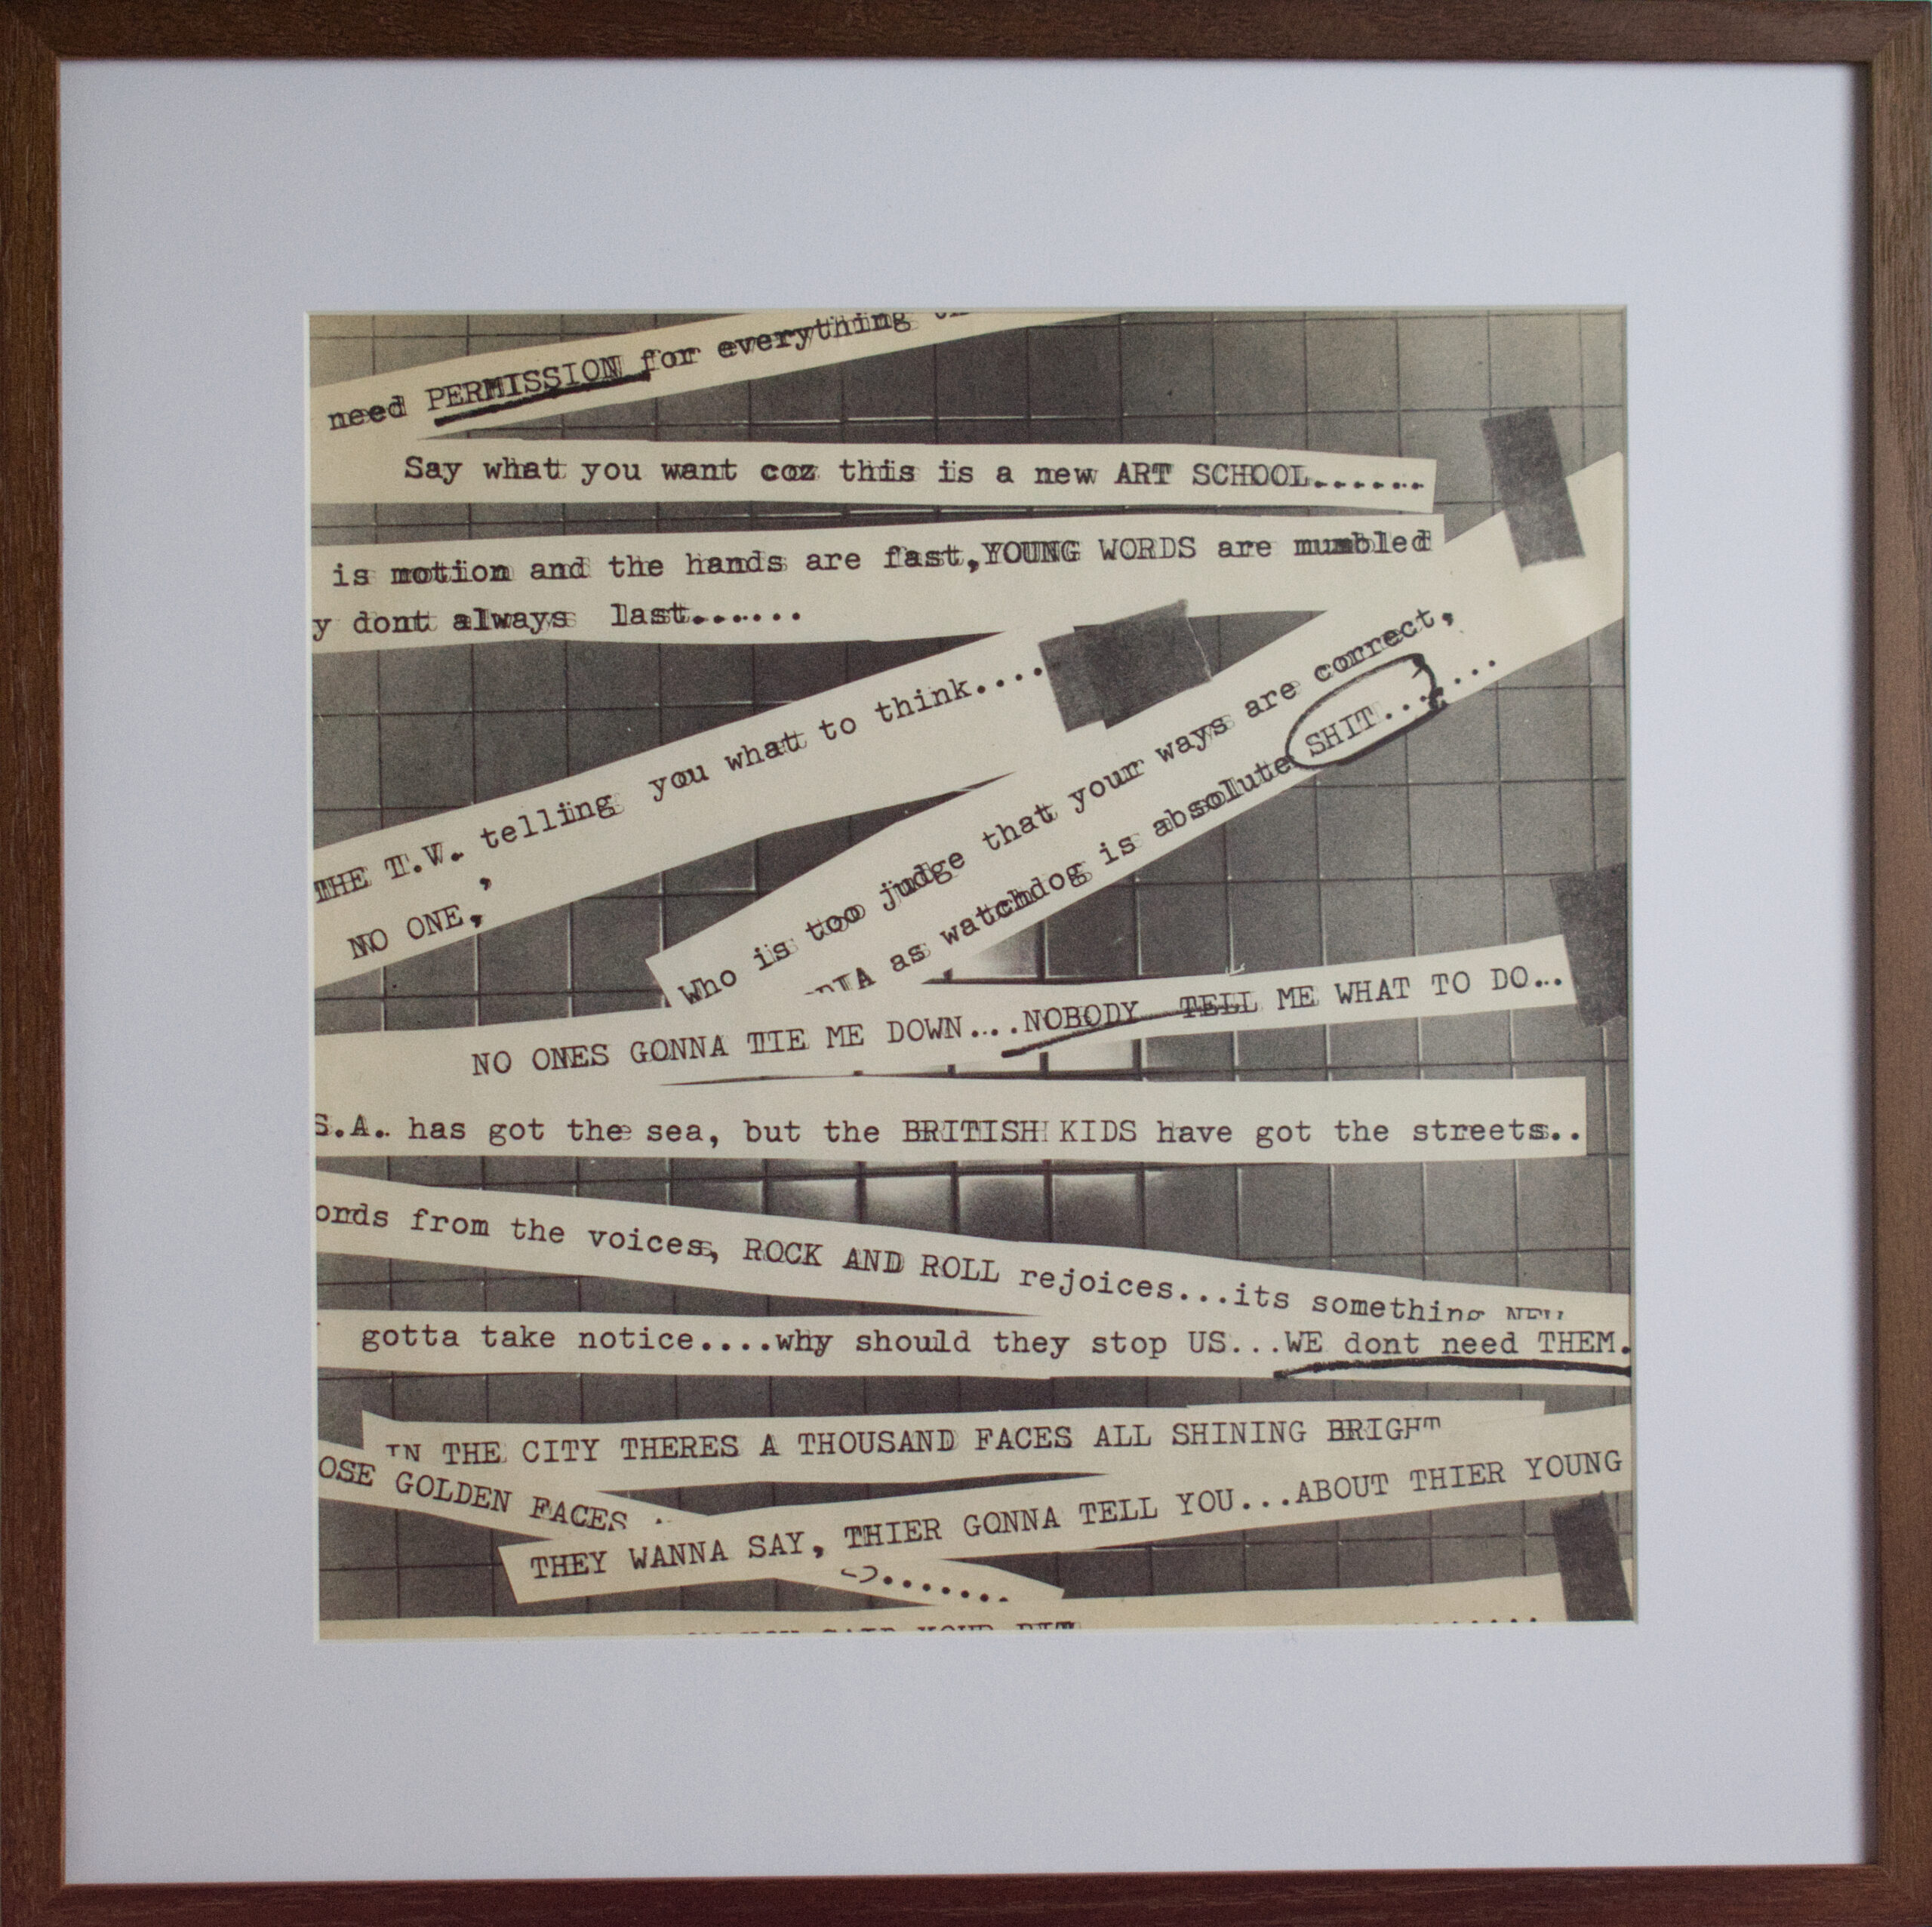 need PERMISSION for everything
Say what you want coz this is a new ART SCHOOL......
is motion and the hands are fast,YOUNG WORDS are mumbled
y dont always last......
THE T.V. telling you what to think....
NO ONE,,
Who is too judge that your ways are correct,
as watchdog is absolute SHIT......
NO ONES GONNA TIE ME DOWN....NOBODY TELL ME WHAT TO DO...
S.A. has got the sea, but the BRITISH KIDS have got the streets..
ords from the voices, ROCK AND ROLL rejoices...its something NEW
gotta take notice....why should they stop US...WE dont need THEM.
IN THE CITY THERES A THOUSAND FACES ALL SHINING BRIGHT
OSE GOLDEN FACES
THEY WANNA SAY, THIER GONNA TELL YOU...ABOUT THIER YOUNG
SAID YOUR BIT